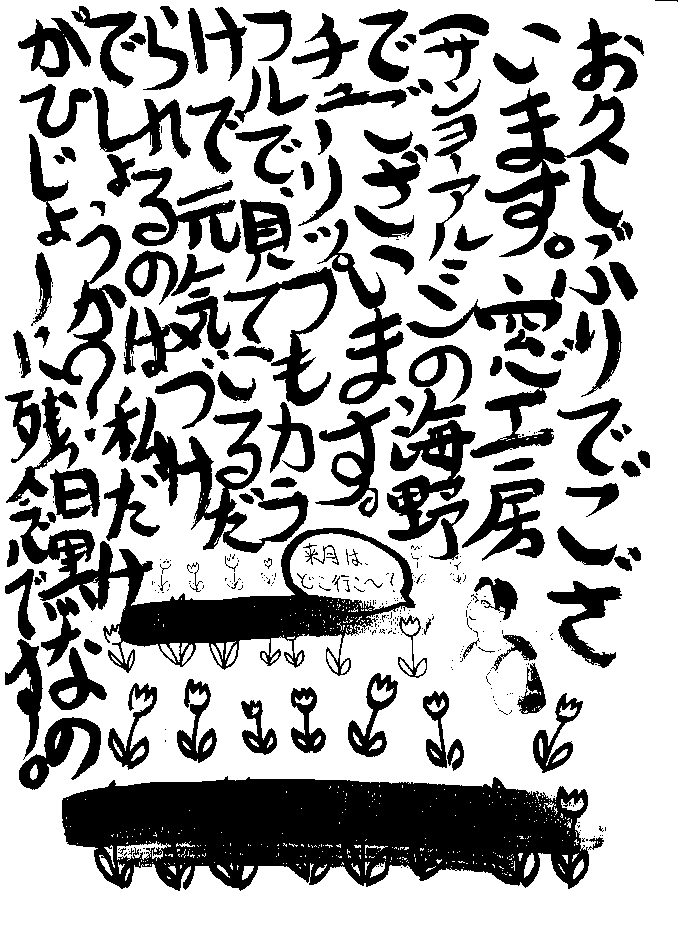 お久しぶりでござ
います。窓工房
サンヨーアルミの海野
でございます。
チューリップもカラ
フルで、見ているだ
けで元気づけ
られるのは私だけ
でしょうか?白黒なの
がひじょーに残念です。
来月は、
どこ行こ〜?